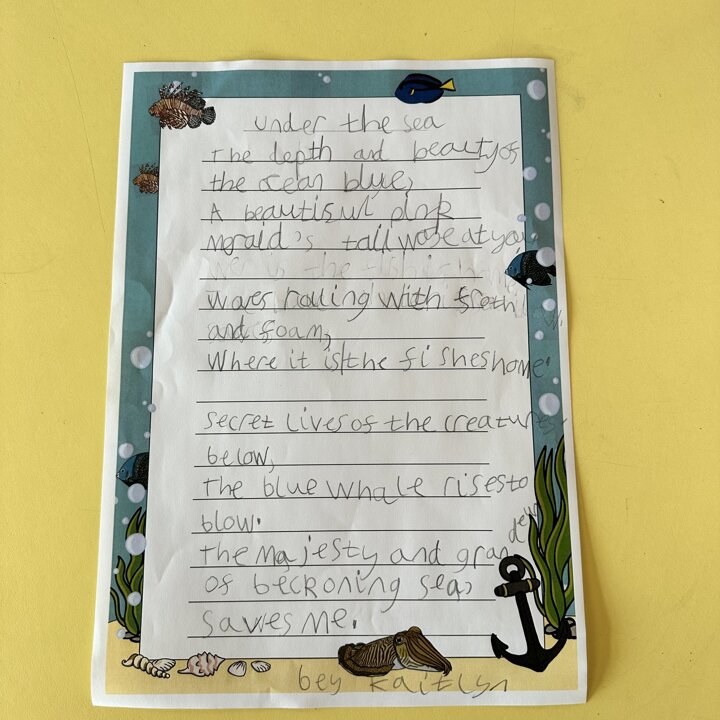 under the sea
The depth and beauty of
the ocean blue,
A beautisul pink
Meraid's tail wave at you.
waves rouling with froth
and foam,
Where it is the fishes home.
secret Lives of the creatures
below,
The blue whale rises to
blow.
The Majesty and grandeur
of beckoning sea,
Saves Me.
bey Kaitlyn